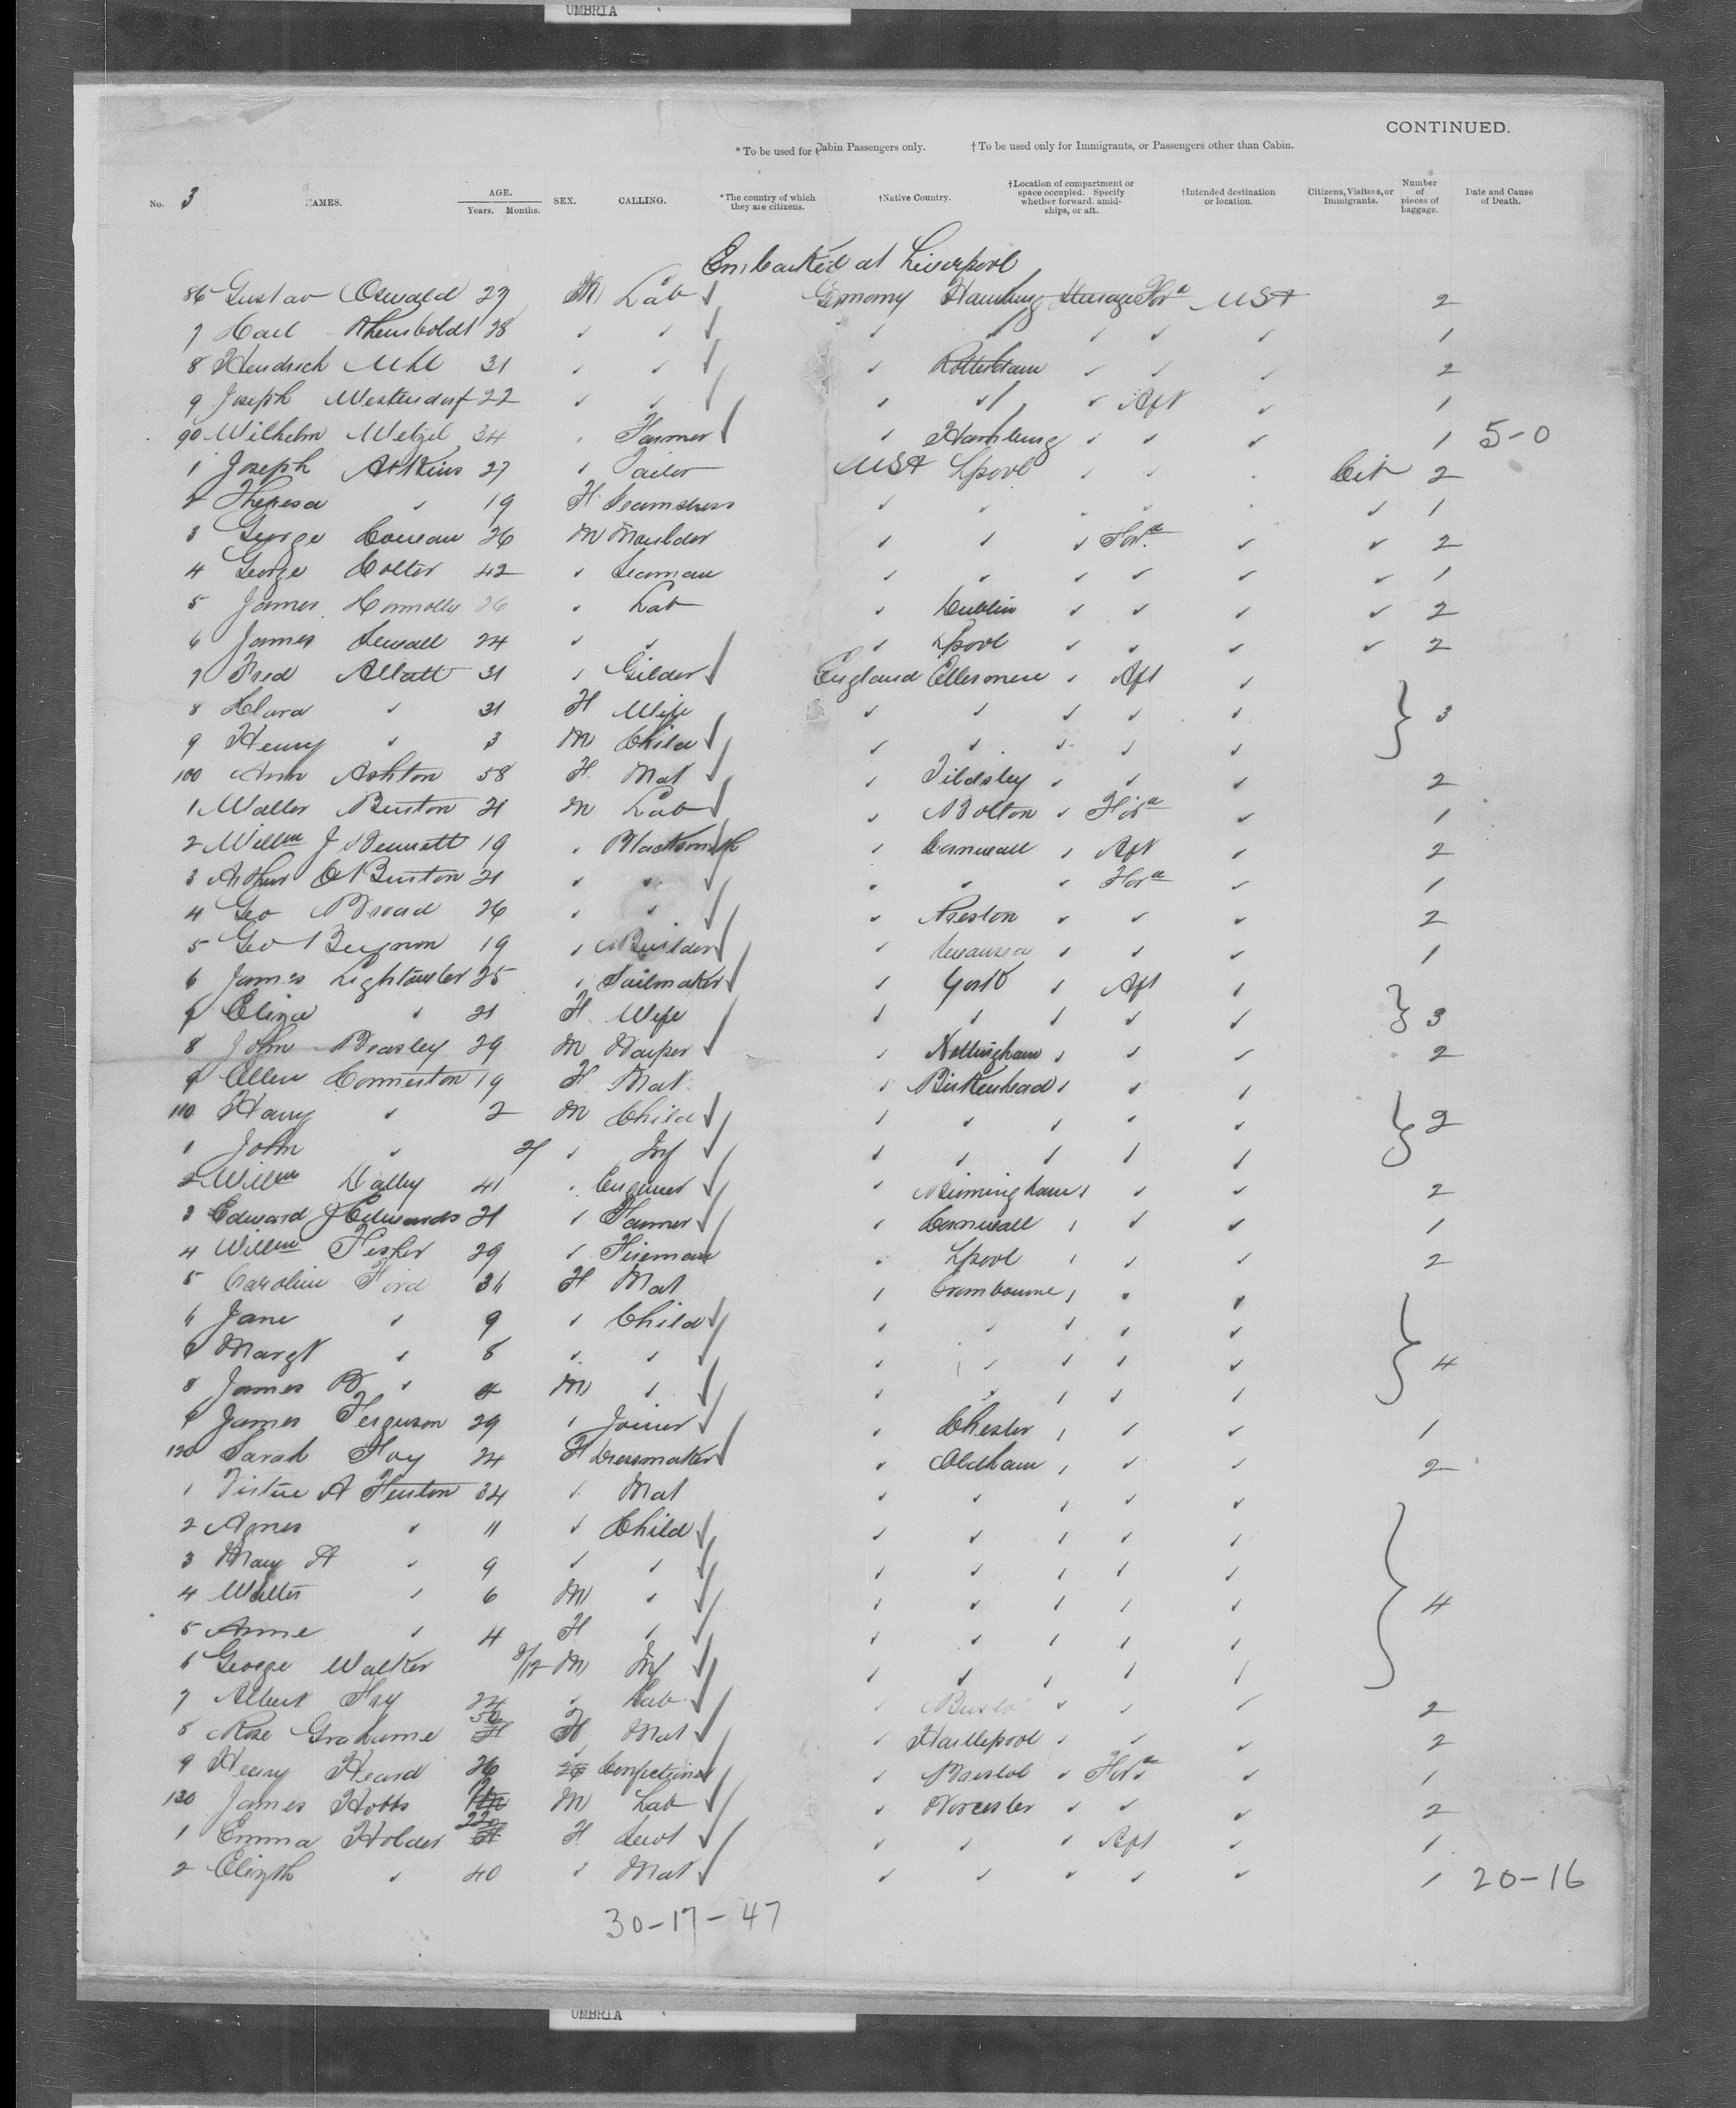 UMBRIA
CONTINUED.
* To be used for Cabin Passengers only. † To be used only for Immigrants, or Passengers other than Cabin.
No. 3 NAMES. AGE. Years. Months. SEX. CALLING. *The country of which they are citizens. †Native Country. †Location of compartment or space occupied. Specify whether forward, amid-ships, or aft. †Intended destination or location. Citizens, Visitors, or Immigrants. Number of pieces of baggage. Date and Cause of Death.
Embarked at Liverpool
86 Gustav Oswald 27 M Lab ✓ Germany Hamburg Steerage For'd USA 2
7 28 ✓ ✓ ✓ ✓ ✓ ✓ ✓ ✓ 1
8 Hendrich Uhl 31 ✓ ✓ ✓ ✓ Rotterdam ✓ ✓ ✓ 2
9 Joseph Westendorf 22 ✓ ✓ ✓ ✓ ✓ ✓ Aft ✓ 1
90 Wilhelm Wetzel 34 ✓ Farmer ✓ ✓ Hamburg ✓ ✓ ✓ 1 5-0
1 Joseph Atkins 27 ✓ Tailor USA Lpool ✓ ✓ ✓ Cit 2
2 Theresa ✓ 19 F Seamstress ✓ ✓ ✓ ✓ ✓ ✓ 1
3 George 26 M Moulder ✓ ✓ ✓ For'd ✓ ✓ 2
4 George Colter 42 ✓ Seaman ✓ ✓ ✓ ✓ ✓ ✓ 1
5 James Connolly 26 ✓ Lab ✓ Dublin ✓ ✓ ✓ ✓ 2
6 James Sewall 24 ✓ ✓ ✓ Lpool ✓ ✓ ✓ ✓ 2
7 Fred Allatt 31 ✓ Gilder ✓ England Ellesmere ✓ Aft ✓
8 Clara ✓ 31 F Wife ✓ ✓ ✓ ✓ ✓ } 3
9 Henry ✓ 3 M Child ✓ ✓ ✓ ✓ ✓ ✓
100 Ann Ashton 58 F Mat ✓ ✓ Tildsley ✓ ✓ ✓ 2
1 Walter Burton 21 M Lab ✓ ✓ Bolton ✓ For'd ✓ 1
2 Willm J Bennett 19 ✓ Blacksmith ✓ Cornwall ✓ Aft ✓ 2
3 Arthur Burston 21 ✓ ✓ ✓ ✓ ✓ ✓ For'd ✓ 1
4 Geo Broad 26 ✓ ✓ ✓ ✓ Preston ✓ ✓ ✓ 2
5 Geo 19 ✓ Builder ✓ ✓ Swansea ✓ ✓ ✓ 1
6 James Lightowler 25 ✓ Sailmaker ✓ ✓ York ✓ Aft ✓
7 Eliza ✓ 21 F Wife ✓ ✓ ✓ ✓ ✓ } 3
8 John Beasley 29 M Warper ✓ ✓ Nottingham ✓ ✓ ✓ 2
9 Ellen Conneston 19 F Mat ✓ Birkenhead ✓ ✓ ✓
110 Harry ✓ 2 M Child ✓ ✓ ✓ ✓ ✓ ✓ } 2
1 John ✓ ✓ Inf ✓ ✓ ✓ ✓ ✓ ✓
2 Willm Dalby 41 ✓ Engineer ✓ ✓ Birmingham ✓ ✓ ✓ 2
3 Edward J Edwards 21 ✓ Farmer ✓ ✓ Cornwall ✓ ✓ ✓ 1
4 Willm Fisher 29 ✓ Fireman ✓ Lpool ✓ ✓ ✓ 2
5 Caroline Ford 36 F Mat ✓ Crambourne ✓ ✓ ✓
6 Jane ✓ 9 ✓ Child ✓ ✓ ✓ ✓ ✓ ✓
7 Margt ✓ 8 ✓ ✓ ✓ ✓ ✓ ✓ ✓ ✓ } 4
8 James B ✓ 4 M ✓ ✓ ✓ ✓ ✓ ✓ ✓
9 James Ferguson 29 ✓ Joiner ✓ ✓ Chester ✓ ✓ ✓ 1
120 Sarah Foy 24 F Dressmaker ✓ ✓ Oldham ✓ ✓ ✓ 2
1 Virtue A Fenton 34 ✓ Mat ✓ ✓ ✓ ✓ ✓
2 Agnes ✓ 11 ✓ Child ✓ ✓ ✓ ✓ ✓ ✓
3 Mary A ✓ 9 ✓ ✓ ✓ ✓ ✓ ✓ ✓ ✓
4 Walter ✓ 6 M ✓ ✓ ✓ ✓ ✓ ✓ ✓ } 4
5 Anne ✓ 4 F ✓ ✓ ✓ ✓ ✓ ✓ ✓
6 George Walker 9/12 M Inf ✓ ✓ ✓ ✓ ✓ ✓
7 Albert Fry 24 ✓ Lab ✓ ✓ Bristol ✓ ✓ ✓ 2
8 Rose Grahame 50 F Mat ✓ ✓ Hartlepool ✓ ✓ ✓ 2
9 Henry Heard 26 ✓ Confectioner ✓ ✓ Bristol ✓ For'd ✓ 1
130 James Hobbs M Lab ✓ ✓ Worcester ✓ ✓ ✓ 2
1 Emma Holder 22 F Servt ✓ ✓ ✓ ✓ Aft ✓ 1
2 Elizth ✓ 40 ✓ Mat ✓ ✓ ✓ ✓ ✓ ✓ 1 20-16
30-17-47
UMBRIA